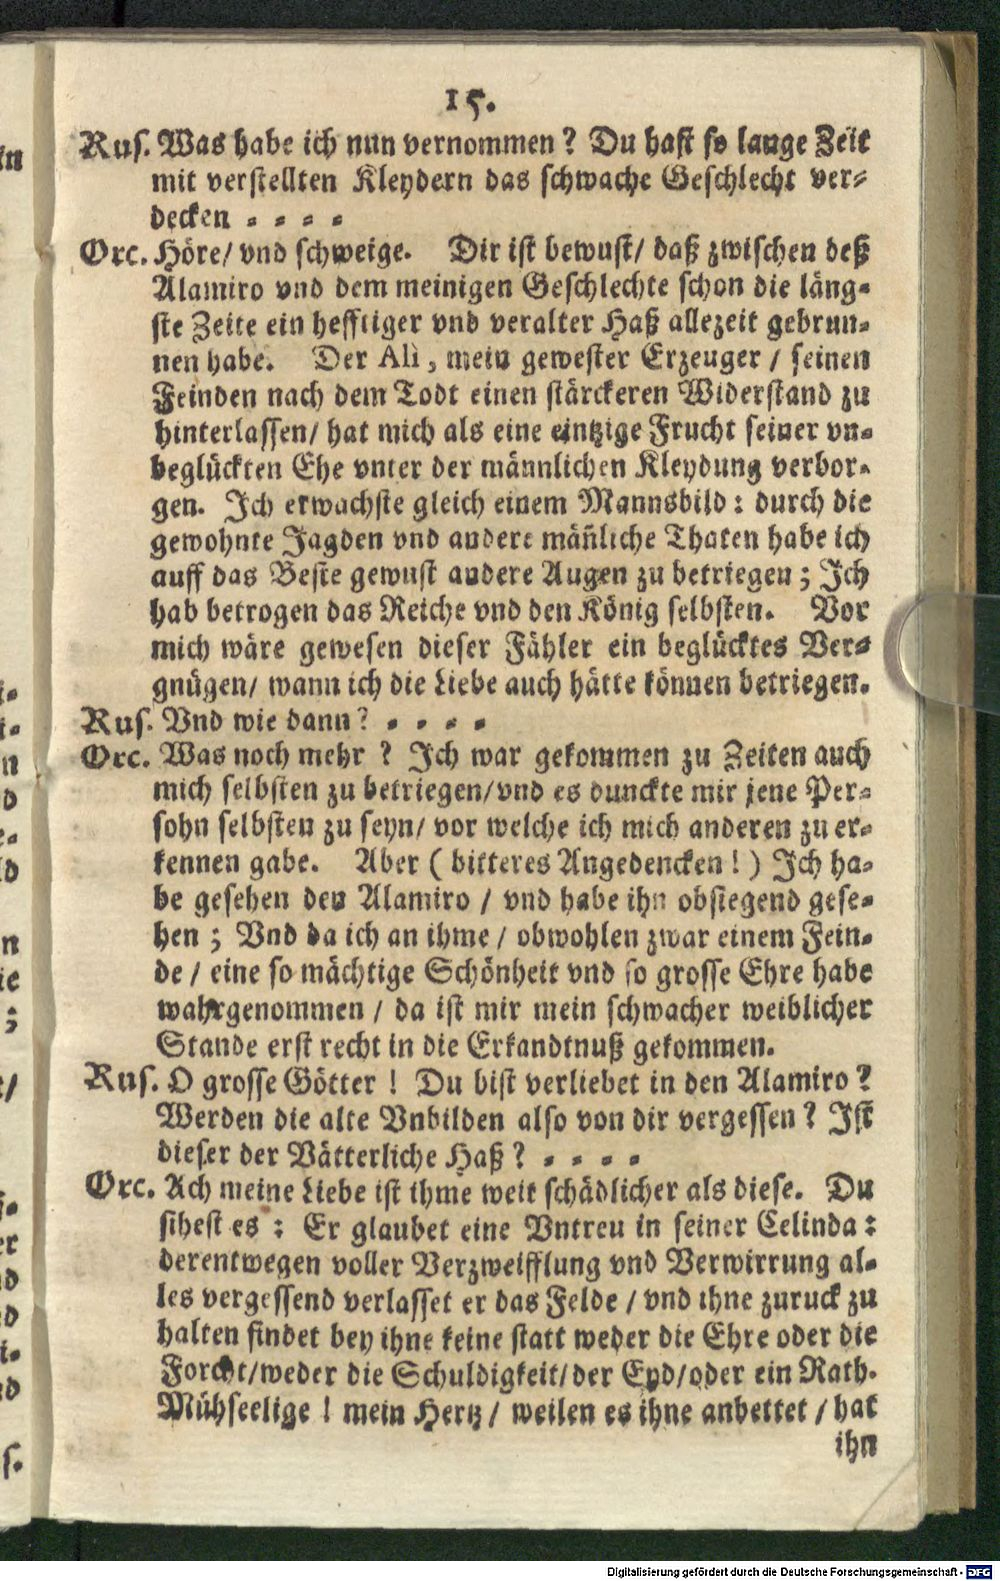 15.
Rus. Was habe ich nun vernommen? Du hast so lange Zeit
mit verstellten Kleydern das schwache Geschlecht ver-
decken = = = =
Orc. Höre/ vnd schweige. Dir ist bewust/ daß zwischen deß
Alamiro vnd dem meinigen Geschlechte schon die läng-
ste Zeite ein hefftiger vnd veralter Haß allezeit gebrun-
nen habe. Der Ali, mein gewester Erzeuger / seinen
Feinden nach dem Todt einen stärckeren Widerstand zu
hinterlassen/ hat mich als eine eintzige Frucht seiner vn-
beglückten Ehe vnter der männlichen Kleydung verbor-
gen. Ich erwachste gleich einem Mannsbild: durch die
gewohnte Jagden vnd andere mäñliche Thaten habe ich
auff das Beste gewust andere Augen zu betriegen; Ich
hab betrogen das Reiche vnd den König selbsten. Vor
mich wäre gewesen dieser Fähler ein beglücktes Ver-
gnügen/ wann ich die Liebe auch hätte können betriegen.
Rus. Vnd wie dann? = = = =
Orc. Was noch mehr ? Ich war gekommen zu Zeiten auch
mich selbsten zu betriegen/vnd es dunckte mir jene Per-
sohn selbsten zu seyn/ vor welche ich mich anderen zu er-
kennen gabe. Aber ( bitteres Angedencken ! ) Ich ha-
be gesehen den Alamiro / vnd habe ihn obsiegend gese-
hen ; Vnd da ich an ihme / obwohlen zwar einem Fein-
de / eine so mächtige Schönheit vnd so grosse Ehre habe
wahrgenommen / da ist mir mein schwacher weiblicher
Stande erst recht in die Erkandtnuß gekommen.
Rus. O grosse Götter ! Du bist verliebet in den Alamiro ?
Werden die alte Vnbilden also von dir vergessen ? Ist
dieser der Vätterliche Haß ? = = = =
Orc. Ach meine Liebe ist ihme weit schädlicher als diese. Du
sihest es : Er glaubet eine Vntreu in seiner Celinda :
derentwegen voller Verzweifflung vnd Verwirrung al-
les vergessend verlasset er das Felde / vnd ihne zuruck zu
halten findet bey ihne keine statt weder die Ehre oder die
Forcht/weder die Schuldigkeit/der Eyd/oder ein Rath.
Mühseelige ! mein Hertz / weilen es ihne anbettet / hat
ihn
Digitalisierung gefördert durch die Deutsche Forschungsgemeinschaft - DFG